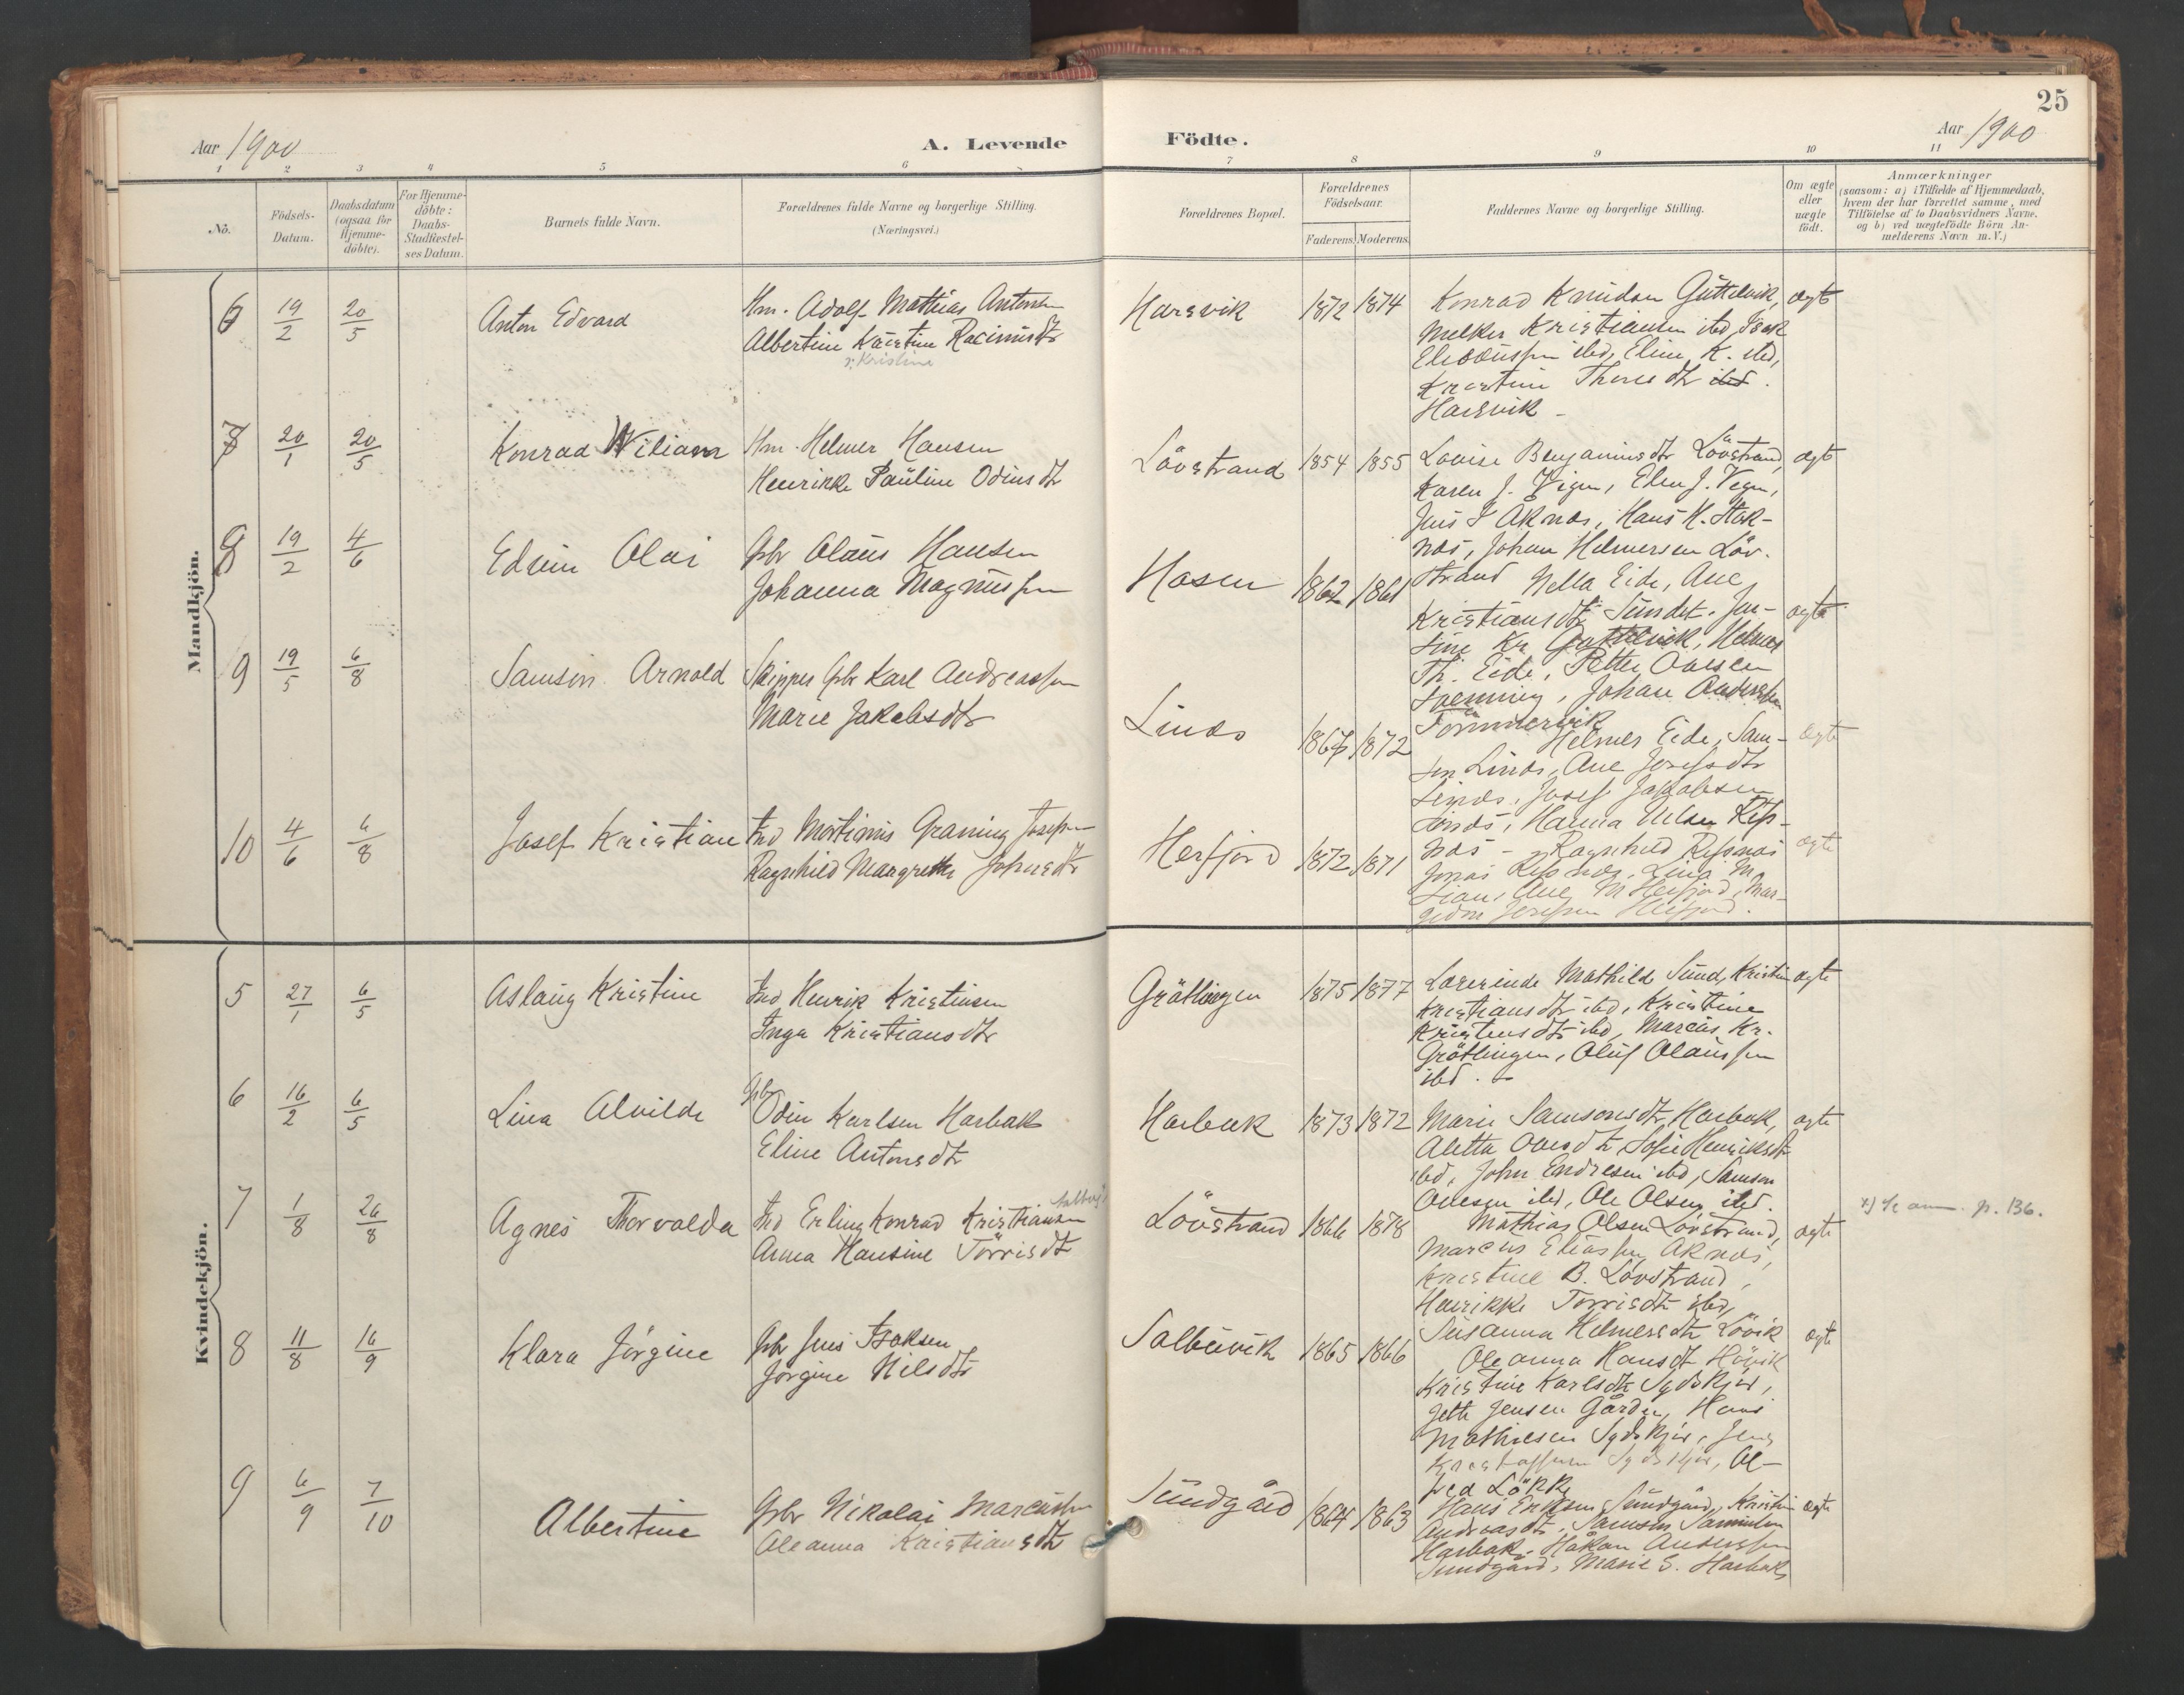 25
Aar 1900
A. Levende
Födte.
Aar 1900
1 2 3 4 5 6 7 8 9 10 11
No.
Födsels-
Datum.
Daabsdatum
(ogsaa for
Hjemme-
döbte).
For Hjemme-
döbte:
Daabs-
Stadfestel-
ses Datum.
Barnets fulde Navn.
Forældrenes fulde Navne og borgerlige Stilling.
(Næringsvei.)
Forældrenes Bopæl.
Forældrenes
Födselsaar.
Faderens. Moderens.
Faddernes Navne og borgerlige Stilling.
Om ægte
eller
uægte
födt.
Anmærkninger
(saasom: a) i Tilfælde af Hjemmedaab,
hvem der har forrettet samme, med
Tilföielse af to Daabsvidners Navne.
og b) ved uægtefödte Börn An-
melderens Navn m.V.)
Mandkjön.
6 19/2 20/5 Anton Edvard
Hm. Adolf Mathias Antonsen
Albertine Kirstine Racinusdtr
Kristine
Harsvik 1872 1874
Konrad Knudsen Guttelvik,
Melker Kristiansen ibd, Isak
ibd, Eline K. ibd,
Kristine dtr
Harsvik
ægte
7 20/1 20/5 Konrad Wiliam
Hm. Helmer Hansen
Henrikke Pauline Odinsdtr
Lövstrand 1854 1855
Lovise Benjaminsdtr Lövstrand,
Karen J. Vigen, Elen J. Vegn,
Jens J Aknes, Hans H. Stok-
nes, Johan Helmersen Löv-
strand
ægte
8 19/2 4/6 Edvin Olai
Gbr Olaus Hansen
Johanna Magnussen
Hosen 1862 1861
Nella Eide, Ane
Kristiansdtr Sundet, Jen-
sine Kr Guttelvik, Helmer
Th. Eide, Petter Ovesen
, Johan Andersen
Tömmervik
ægte
9 19/5 6/8 Samson Arnold
Skipper Gbr Karl Andreassen
Marie Jakobsdtr
Linæs 1867 1872
Helmer Eide, Sam-
son Linæs, Ane Josefsdtr
Linæs, Josef Jakobsen
Linæs, Hanna Nelsen Reps-
næs
ægte
10 4/6 6/8 Josef Kristian
Ind Mortinus Graning Josefsen
Ragnhild Margrethe Johnsdtr
Herfjord 1872 1871
Ragnhild Repsnæs
Jonas Repsnæs, Lina M
Lian, Ane M Herfjord, Mar-
Josefsen Herfjord.
ægte
Kvindekjön.
5 27/1 6/5 Aslaug Kristine
Ind Henrik Kristensen
Inga Kristiansdtr
Gröttingen 1875 1877
Lærerinde Mathilde Sund, Kristine
Kristiansdtr ibd, Kristine
Kristensdtr ibd, Marcus Kr.
Gröttingen, Oluf Olaussen
ibd.
ægte
6 16/2 6/5 Lina Alvilde
Gbr
Odin Karlsen Harbak
Eline Antonsdtr
Harbak 1873 1872
Marie Samsonsdtr, Harbak,
Aletta Ovesdtr Sofie Henriksdtr
ibd, John Endresen ibd, Samson
Ovesen ibd, Ole Olsen ibd.
ægte
7 1/8 26/8 Agnes Thorvalda
Ind Erling Konrad Kristiansen
Anna Hansine Törrisdtr
Lövstrand 1866 1878
Mathias Olsen Lövstrand,
Marcus Eliassen Aknes,
Kristine B. Lövstrand,
Henrikke Torrisdtr ibd,
Susanna Helmersdtr Lövik
ægte
x) Se anm. p. 136.
8 11/8 16/9 Klara Jörgine
Gbr Jens Isaksen
Jörgine Nilsdtr
Salbuvik 1865 1866
Oleanna Hansdtr Hövik
Kristine Karlsdtr Sydskjör,
Jette Jensen Gården, Hans
Mathiesen Sydskjör, Jens
Kristoffersen Sydskjör, Al-
fred Lökke
ægte
9 6/9 7/10 Albertine
Gbr Nikolai Marcussen
Oleanna Kristiansdtr
Sundgård 1864 1863
Hans Eriksen Sundgård, Kristine
Andreasdtr, Samson Samuelsen
Harbak, Håkon Anderssen
Sundgård, Marie S. Harbak
ægte